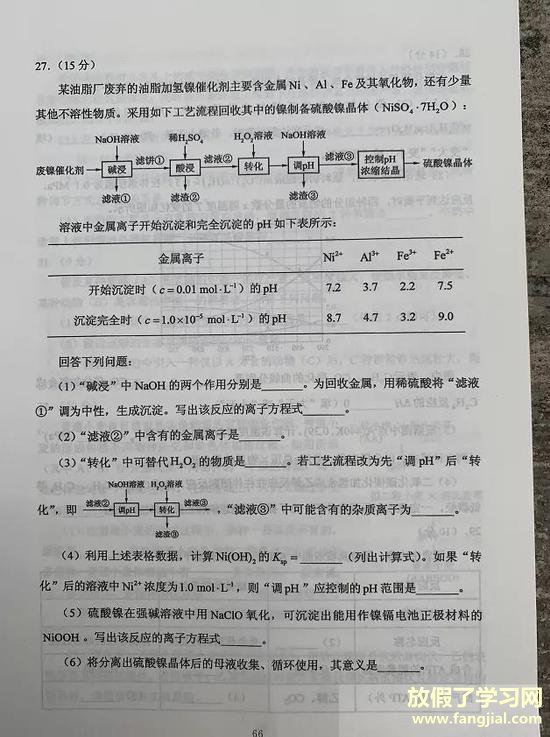 27.(15分)
某油脂厂废弃的油脂加氢镍催化剂主要含金属Ni、Al、Fe及其氧化物，还有少量
其他不溶性物质。采用如下工艺流程回收其中的镍制备硫酸镍晶体（NiSO₄·7H₂O）：
NaOH溶液 稀H₂SO₄ H₂O₂溶液 NaOH溶液
废镍催化剂 碱浸 滤饼① 酸浸 滤液② 转化 调pH 滤液③ 控制pH 浓缩结晶 硫酸镍晶体
滤液① 滤渣② 滤渣③
溶液中金属离子开始沉淀和完全沉淀的pH如下表所示：
金属离子 Ni²⁺ Al³⁺ Fe³⁺ Fe²⁺
开始沉淀时（c=0.01 mol·L⁻¹）的pH 7.2 3.7 2.2 7.5
沉淀完全时（c=1.0×10⁻⁵ mol·L⁻¹）的pH 8.7 4.7 3.2 9.0
回答下列问题：
(1)“碱浸”中NaOH的两个作用分别是______。为回收金属，用稀硫酸将“滤液
①”调为中性，生成沉淀。写出该反应的离子方程式______。
(2)“滤液②”中含有的金属离子是______。
(3)“转化”中可替代H₂O₂的物质是______。若工艺流程改为先“调pH”后“转
NaOH溶液 H₂O₂溶液
化”，即 滤液② 调pH 转化 滤液③ ，“滤液③”中可能含有的杂质离子为______。
滤渣③
(4)利用上述表格数据，计算Ni(OH)₂的Ksp=______（列出计算式）。如果“转
化”后的溶液中Ni²⁺浓度为1.0 mol·L⁻¹，则“调pH”应控制的pH范围是______。
(5)硫酸镍在强碱溶液中用NaClO氧化，可沉淀出能用作镍镉电池正极材料的
NiOOH。写出该反应的离子方程式______。
(6)将分离出硫酸镍晶体后的母液收集、循环使用，其意义是______。
66
放假了学习网
www.fangjial.com